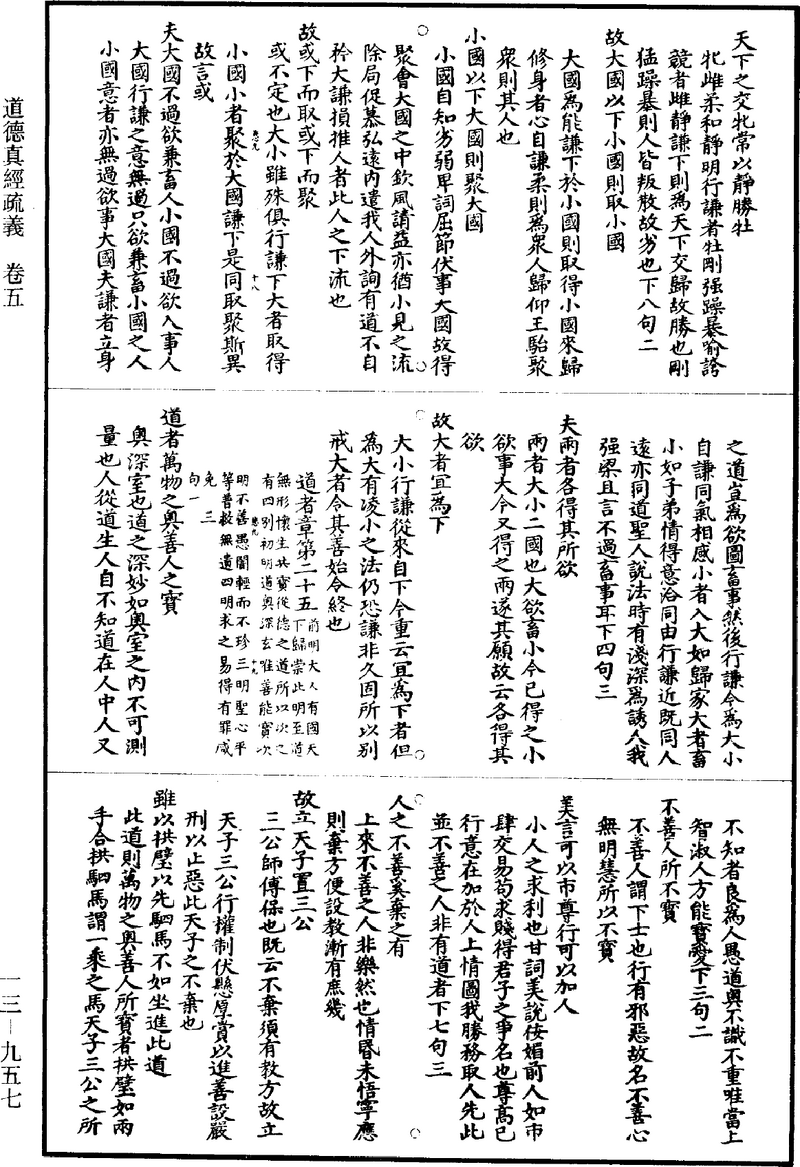 道德真經疏義　卷五
天下之交牝常以靜勝牡
牝雌柔和靜明行謙者牡剛强躁暴喻誇
競者雌靜謙下則為天下交歸故勝也剛
猛躁暴則人皆叛散故劣也下八句二
故大國以下小國則取小國
大國為能謙下於小國則取得小國來歸
修身者心自謙柔則為衆人歸仰王駘聚
衆則其人也
小國以下大國則聚大國
小國自知劣弱卑詞屈節伏事大國故得
聚會大國之中欽風請益亦猶小見之流
除局促慕弘遠內遣我人外詢有道不自
矜大謙損推人者此人之下流也
故或下而取或下而聚
或不定也大小雖殊俱行謙下大者取得
小國小者聚於大國謙下是同取聚斯異
故言或
夫大國不過欲兼畜人小國不過欲入事人
大國行謙之意無過只欲兼畜小國之人
小國意者亦無過欲事大國夫謙者立身
之道豈為欲圖畜事然後行謙令為大小
自謙同氣相感小者入大如歸家大者畜
小如子弟情得意洽同由行謙近既同人
遠亦同道聖人說法時有淺深為誘人我
强梁且言不過畜事耳下四句三
夫兩者各得其所欲
兩者大小二國也大欲畜小今已得之小
欲事大今又得之兩遂其願故云各得其
欲
故大者宜為下
大小行謙從來自下今重云宜為下者但
為大有凌小之法仍恐謙非久固所以別
戒大者令其善始令終也
道者章第二十五
前明大人有國天
下歸崇此明至道
無形懷生共寶從德之道所以次之
有四別初明道奧深玄唯善能寶次
明不善愚闇輕而不珍三明聖心平
等普救無遺四明求之易得有罪咸
免三
句一
道者萬物之奧善人之寶
奧深室也道之深妙如奧室之內不可測
量也人從道生人自不知道在人中人又
不知者良為人愚道奧不識不重唯當上
智淑人方能寶愛下三句二
不善人所不寶
不善人謂下士也行有邪惡故名不善心
無明慧所以不寶
美言可以市尊行可以加人
小人之求利也甘詞美說佞媚前人如市
肆交易苟求賤得君子之爭名也尊高已
行意在加於人上情圖我勝務取人先此
並不善之人非有道者下七句三
人之不善奚棄之有
上來不善之人非樂然也情昬未悟寧應
則棄方便設教漸有庶幾
故立天子置三公
三公師傅保也既云不棄須有教方故立
天子三公行權制伏懸厚賞以進善設嚴
刑以止惡此天子之不棄也
雖以拱璧以先駟馬不如坐進此道
此道則萬物之奧善人所寶者拱璧如兩
手合拱駟馬謂一乘之馬天子三公之所
一三—九五七